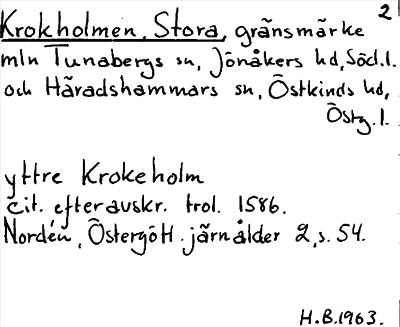 2
Krokholmen, Stora, gränsmärke
mln Tunabergs sn, Jönåkers hd, Södl.l.
och Häradshammars sn, Östkinds hd,
Östg.l.
yttre Krokeholm
cit. efter avskr. trol. 1586.
Nordén, Östergötl. järnålder 2, s. 54.
H.B.1963.